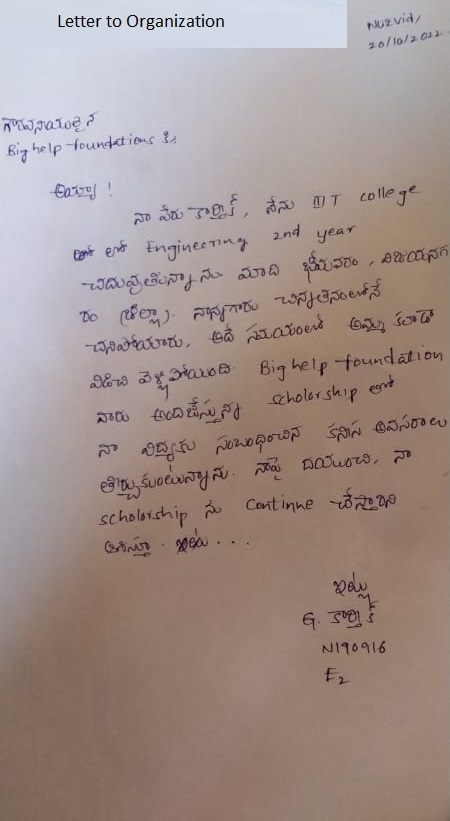 Letter to Organization
Nuzvid,
20/10/2022.
గౌరవనీయులైన
Big help foundations కి,
అయ్యా !
నా పేరు కార్తీక్, నేను IIIT college
లో Engineering 2nd year
చదువుతున్నాను. మాది భీమవరం, విజయనగ
రం జిల్లా. నాన్నగారు చిన్నతనంలోనే
చనిపోయారు, అదే సమయంలో అమ్మ కూడా
విడిచి వెళ్ళిపోయింది. Big help foundation
వారు అందిజేస్తున్న scholorship తో
నా విద్యకు సంబంధించిన కనీస అవసరాలు
తీర్చుకుంటున్నాను. నాపై దయుంచి, నా
scholorship ను continue చేస్తారని
ఆశిస్తూ. ఇట్లు...
ఇట్లు
G. కార్తీక్
N190916
E2